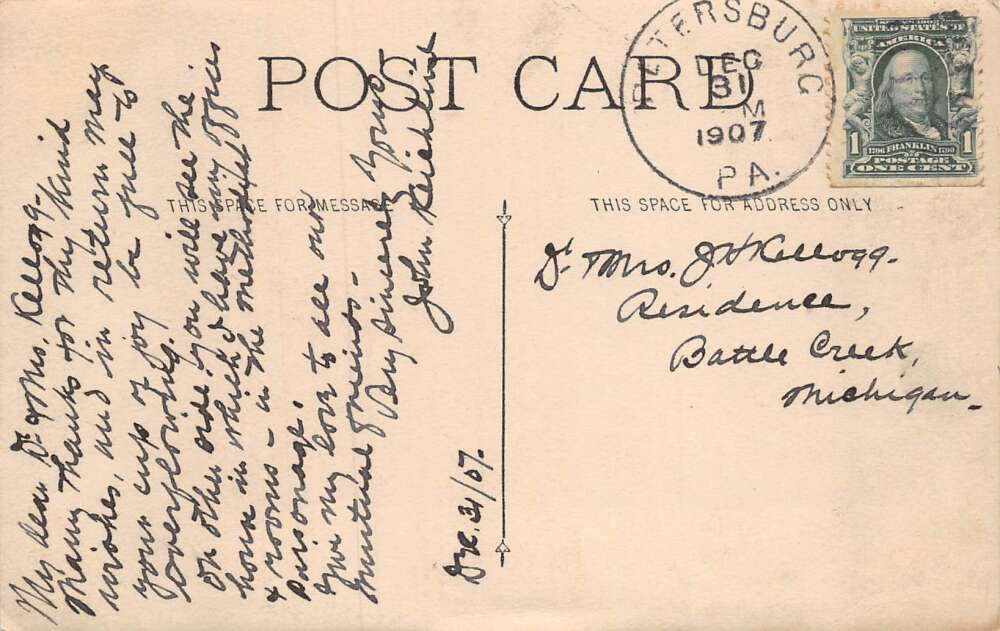 POST CARD
PETERSBURG
DEC
31
M
1907
PA.
UNITED STATES OF
AMERICA
1 1706 FRANKLIN 1790 1
POSTAGE
ONE CENT
THIS SPACE FOR MESSAGE
THIS SPACE FOR ADDRESS ONLY
Dr. & Mrs. J H Kellogg.
Residence,
Battle Creek,
Michigan.
My dear Dr. & Mrs. Kellogg.
Many thanks for thy kind
wishes, and in return may
your cup of joy be full to
overflowing.
On other side you will see the
home in which I have my office
& rooms - in the Methodist
parsonage.
Give my love to all our
mutual friends -
Very sincerely yours
John
Dec. 31/07.